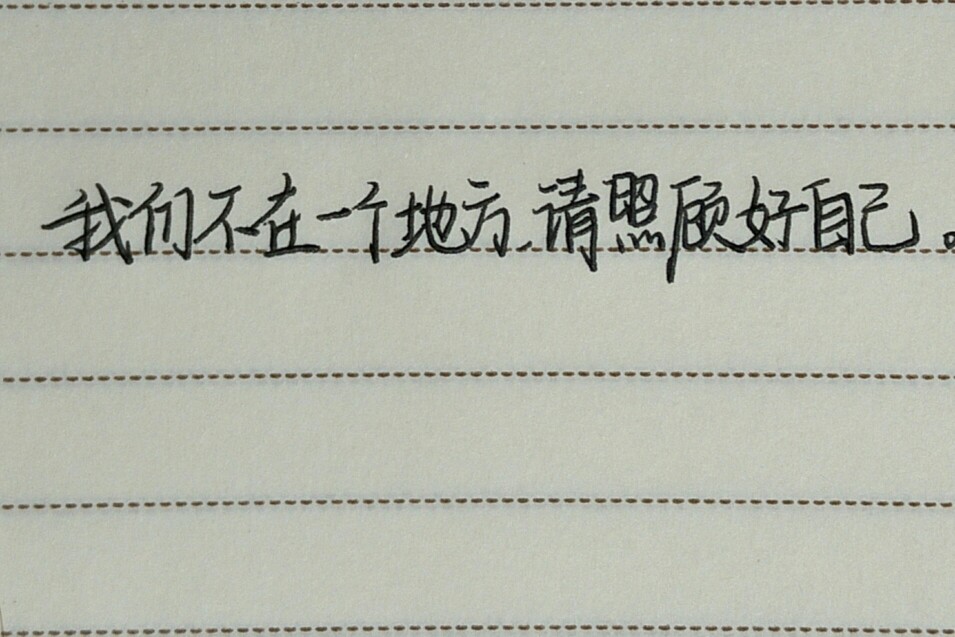 我们不在一个地方,请照顾好自己。